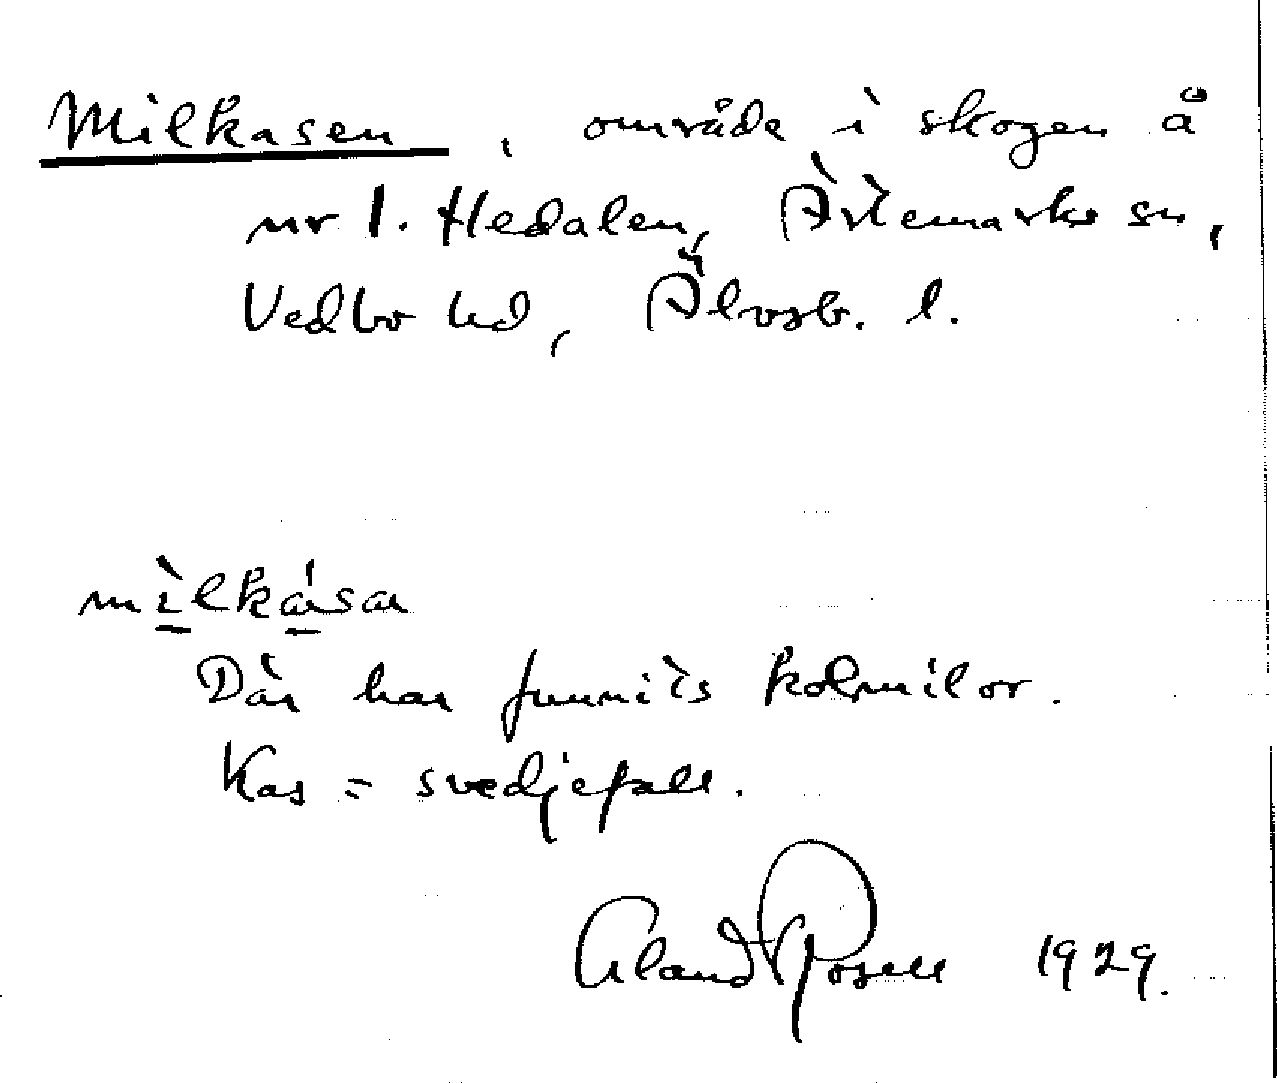 Milkasen, område i skogen å
nr 1. Hedalen, Ärtemarks sn,
Vedbo hd, Älvsb. l.
mìlkása
Där har funnits kolmilor.
Kas = svedjefall.
Erland Rosell 1929.